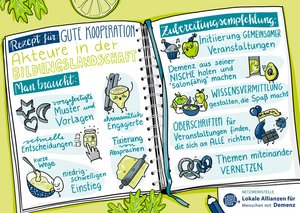 Rezept für GUTE KOOPERATION
Akteure in der
BILDUNGSLANDSCHAFT
Man braucht:
vorgefertigte
Muster und
Vorlagen
schnelle
Entscheidungen
ehrenamtlich
Engagierte
kurze
Wege
niedrig-
schwelliger
Einstieg
Fixierung
von
Absprachen
Zubereitungsempfehlung:
Initiierung GEMEINSAMER
Veranstaltungen
Demenz aus seiner
NISCHE holen und
"salonfähig" machen
WISSENSVERMITTLUNG
gestalten, die Spaß macht
OBERSCHRIFTEN für
Veranstaltungen finden,
die sich an ALLE richten
Themen miteinander
VERNETZEN
NETZWERKSTELLE
Lokale Allianzen für
Menschen mit Demenz